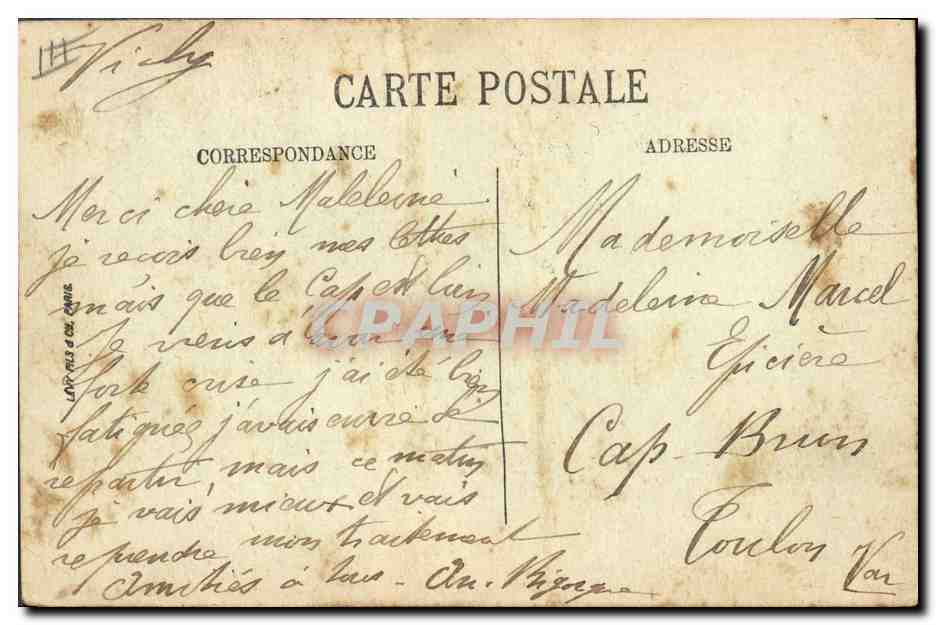 Vichy
CARTE POSTALE
CORRESPONDANCE
ADRESSE
Merci chère Madeleine
je reçois bien mes lettres
mais que le Cap est bien
Je viens d'avoir une
forte crise j'ai été bien
fatiguée j'avais envie de
repartir, mais ce matin
je vais mieux et vais
reprendre mon traitement
Amitiés à tous - An. Bigorgne
Mademoiselle
Madeleine Marcel
Epicière
Cap-Brun
Toulon Var
LEVY FILS & Cie, PARIS
CPAPHIL